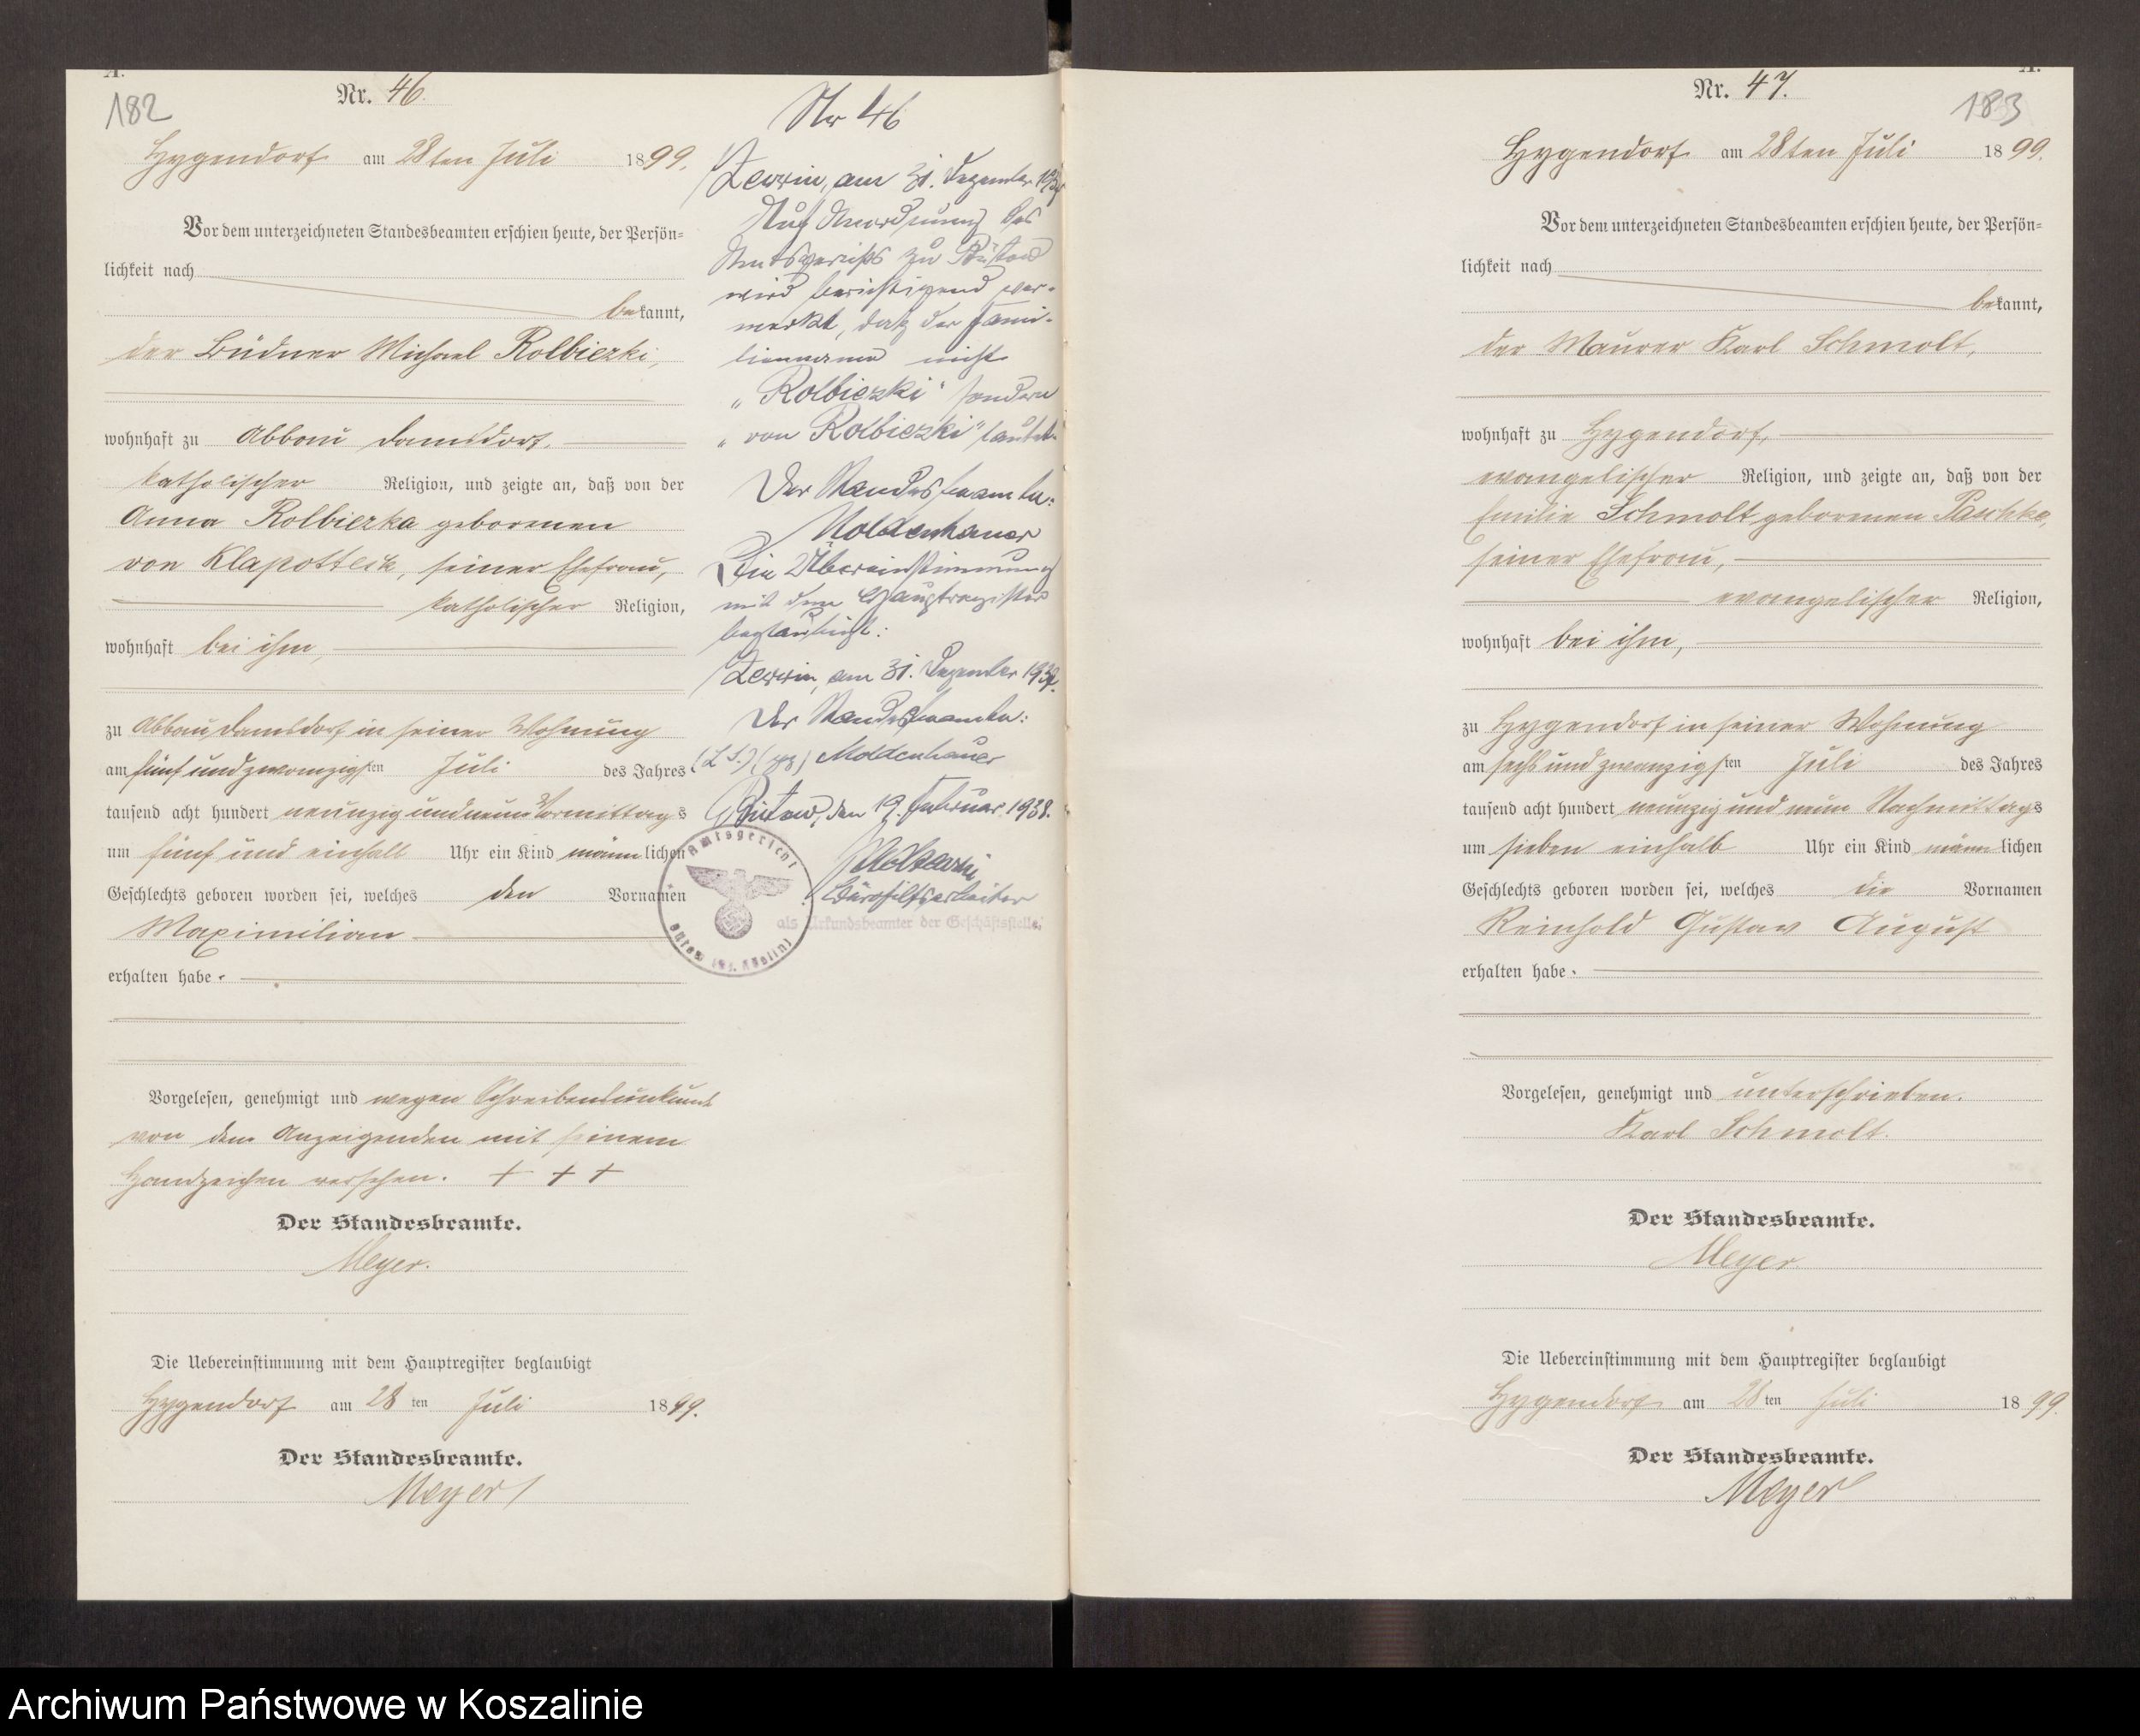 A.
182
Nr. 46.
Hygendorf am 28ten Juli 1899.
Vor dem unterzeichneten Standesbeamten erschien heute, der Persön=
lichkeit nach
bekannt,
der Büdner Michael Rolbiezki,
wohnhaft zu Abbau Damsdorf,
katholischer Religion, und zeigte an, daß von der
Anna Rolbiezka geborenen
von Klapotteck, seiner Ehefrau,
katholischer Religion,
wohnhaft bei ihm,
zu Abbau Damsdorf in seiner Wohnung
am fünf und zwanzigsten Juli des Jahres
tausend acht hundert neunzig und neun Vormittags
um fünf und einhalb Uhr ein Kind männlichen
Geschlechts geboren worden sei, welches den Vornamen
Maximilian
erhalten habe.
Vorgelesen, genehmigt und wegen Schreibensunkunde
von dem Anzeigenden mit seinem
Handzeichen versehen. + + +
Der Standesbeamte.
Meyer.
Die Uebereinstimmung mit dem Hauptregister beglaubigt
Hygendorf am 28 ten Juli 1899.
Der Standesbeamte.
Meyer
Nr 46
Zerrin, am 31. Dezember 1937
Auf Anordnung des
Amtsgerichts zu Bütow
wird berichtigend ver-
merkt, daß der Fami-
lienname nicht
„Rolbiezki“ sondern
„von Rolbiezki“ lautet.
Der Standesbeamte:
Moldenhauer
Die Übereinstimmung
mit dem Hauptregister
beglaubigt:
Zerrin, am 31. Dezember 1937.
Der Standesbeamte:
(L.S.) (gez) Moldenhauer
Bütow, den 19. Februar 1938.
Büro­hilfsarbeiter
als Urkundsbeamter der Geschäftsstelle.
Amtsgericht
Bütow (Bz. Köslin)
A.
183
Nr. 47.
Hygendorf am 28ten Juli 1899.
Vor dem unterzeichneten Standesbeamten erschien heute, der Persön=
lichkeit nach
bekannt,
der Maurer Karl Schmolt,
wohnhaft zu Hygendorf,
evangelischer Religion, und zeigte an, daß von der
Emilie Schmolt geborenen Paschke,
seiner Ehefrau,
evangelischer Religion,
wohnhaft bei ihm,
zu Hygendorf in seiner Wohnung
am sechs und zwanzigsten Juli des Jahres
tausend acht hundert neunzig und neun Nachmittags
um sieben einhalb Uhr ein Kind männlichen
Geschlechts geboren worden sei, welches die Vornamen
Reinhold Gustav August
erhalten habe.
Vorgelesen, genehmigt und unterschrieben.
Karl Schmolt.
Der Standesbeamte.
Meyer
Die Uebereinstimmung mit dem Hauptregister beglaubigt
Hygendorf am 28 ten Juli 1899.
Der Standesbeamte.
Meyer
Archiwum Państwowe w Koszalinie